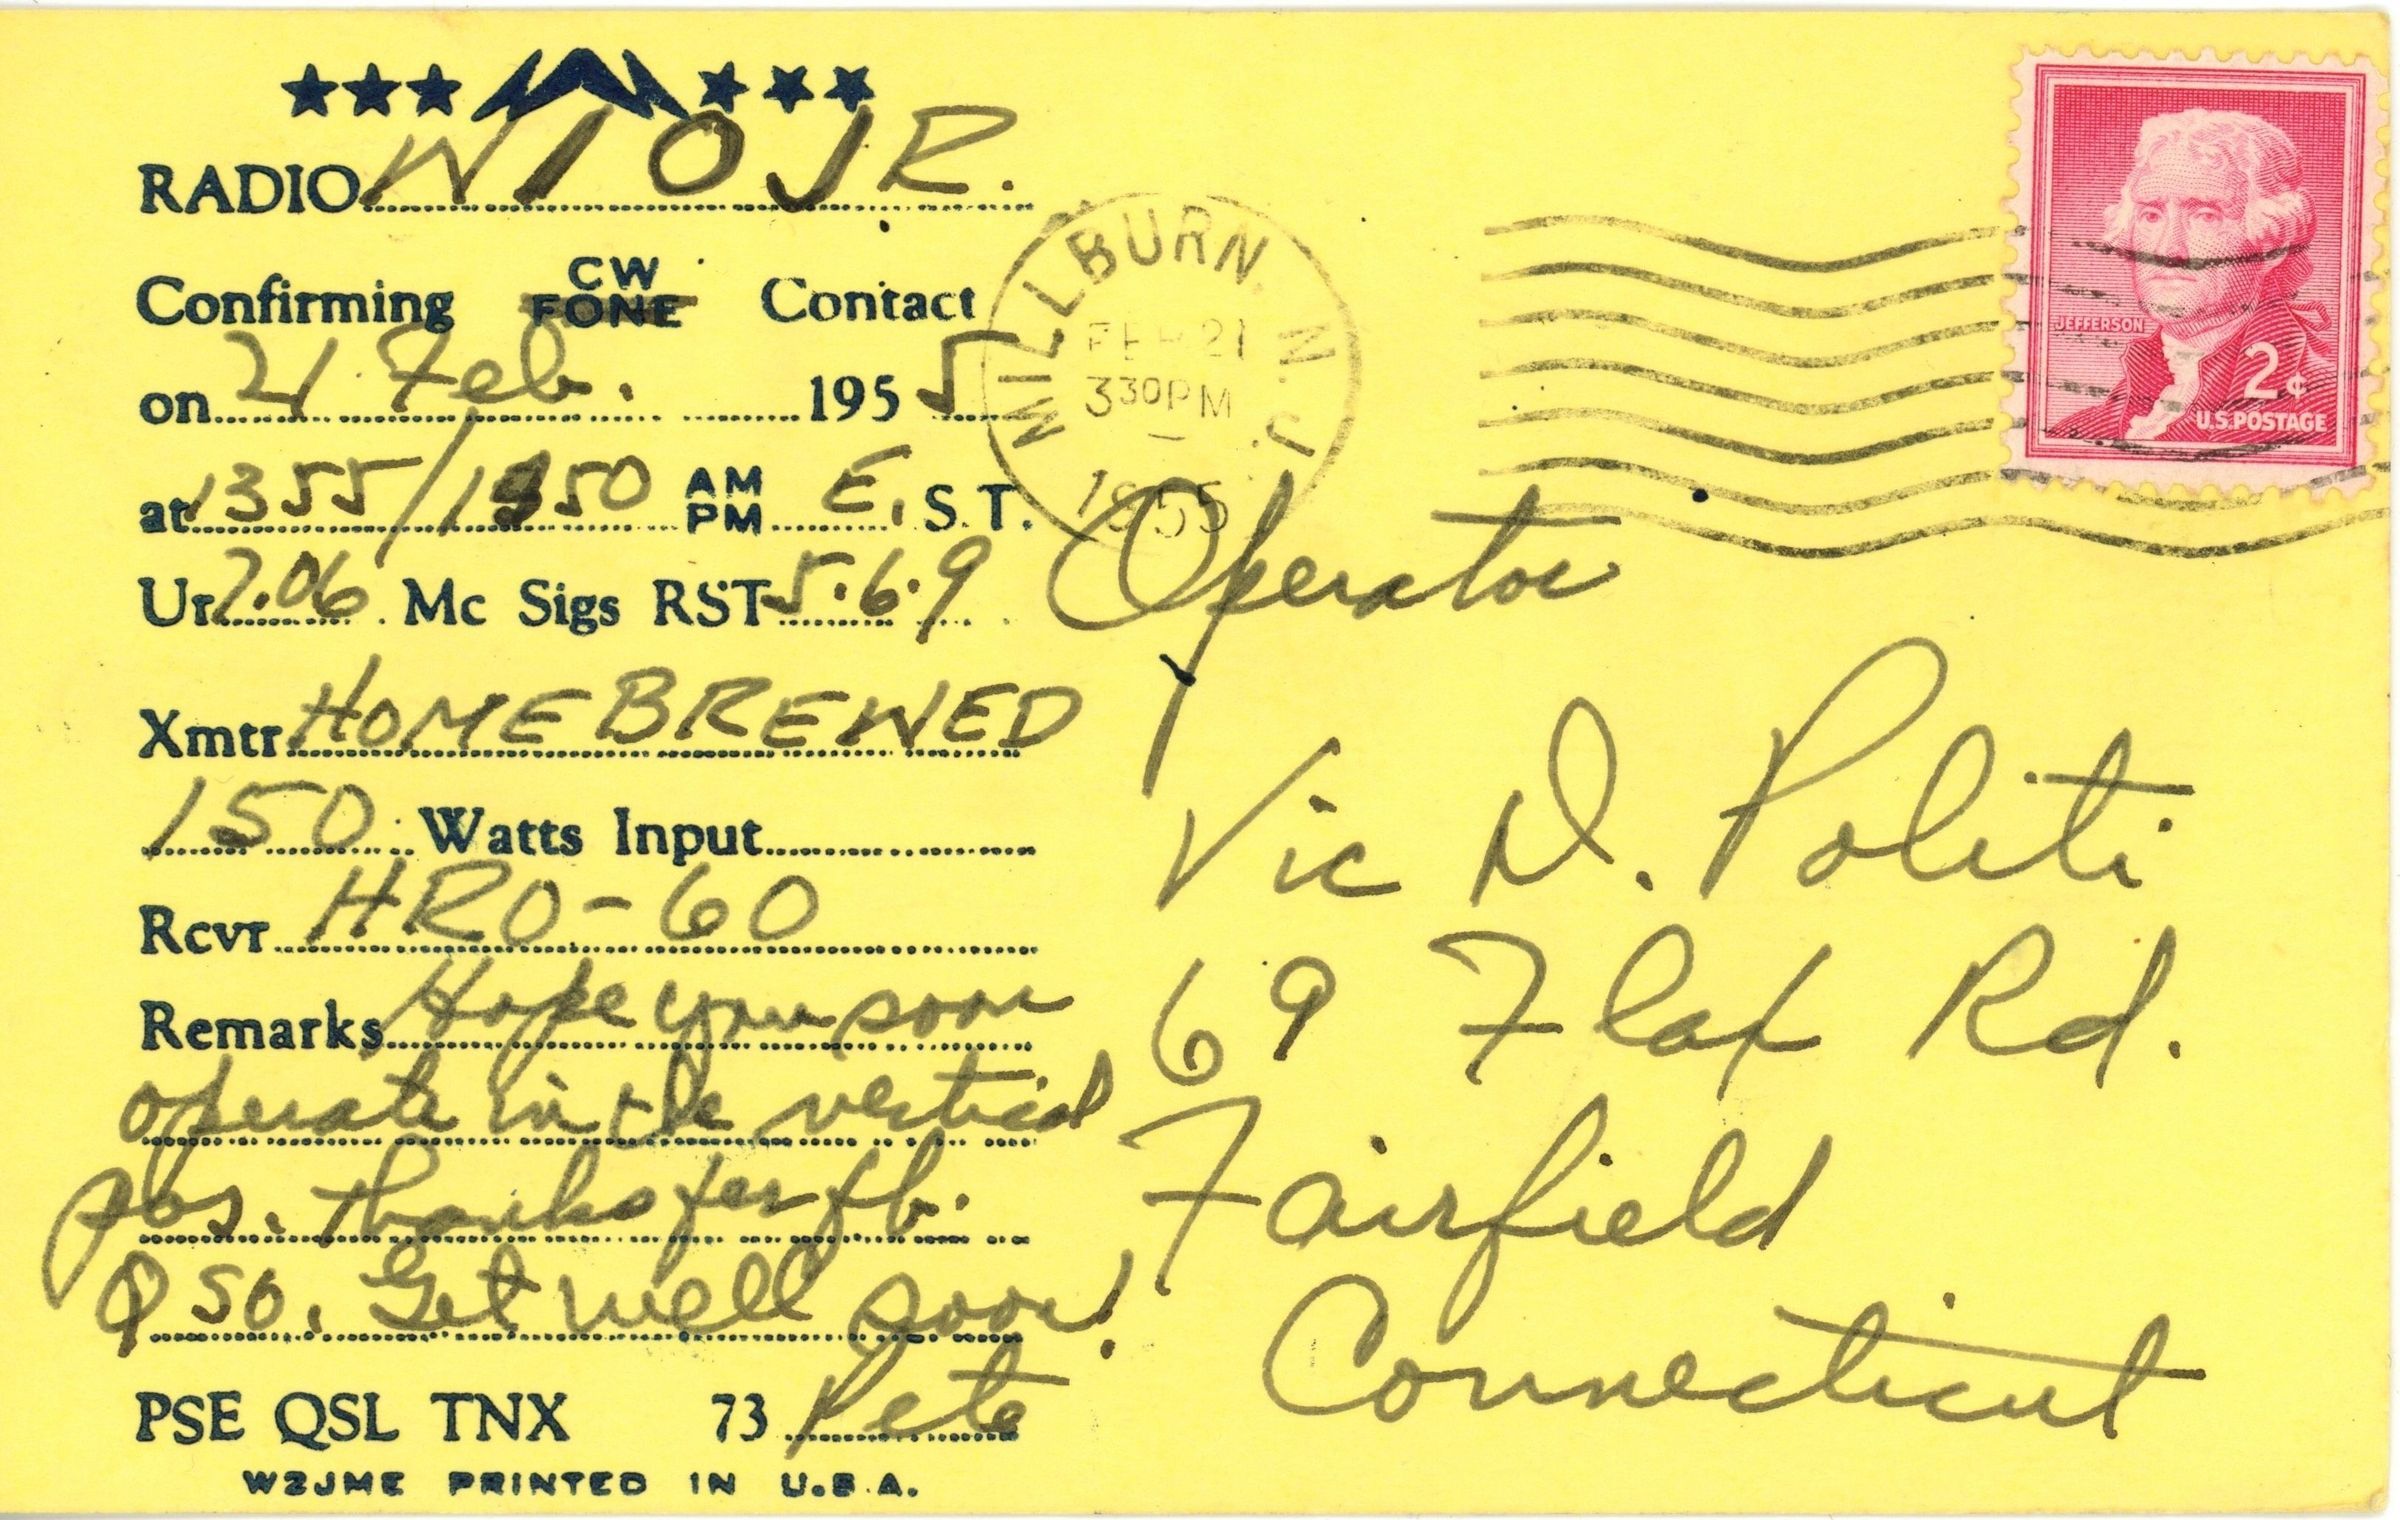 RADIO W1OJR.
Confirming CW FONE Contact
on 21 Feb. 1955
at 1355/1350 AM PM E. S.T.
Ur 7.06 Mc Sigs RST 5.6.9
Xmtr HOME BREWED
150 Watts Input
Rcvr HRO-60
Remarks Hope you soon
operate in the vertical
pos. Thanks for fb.
QSO. Get well soon!
PSE QSL TNX 73 Pete
W2JME PRINTED IN U.S.A.
MILLBURN. N.J.
FEB 21
3 30PM
1955
JEFFERSON
2¢
U.S. POSTAGE
Operator
Vic D. Politi
69 Flax Rd.
Fairfield
Connecticut